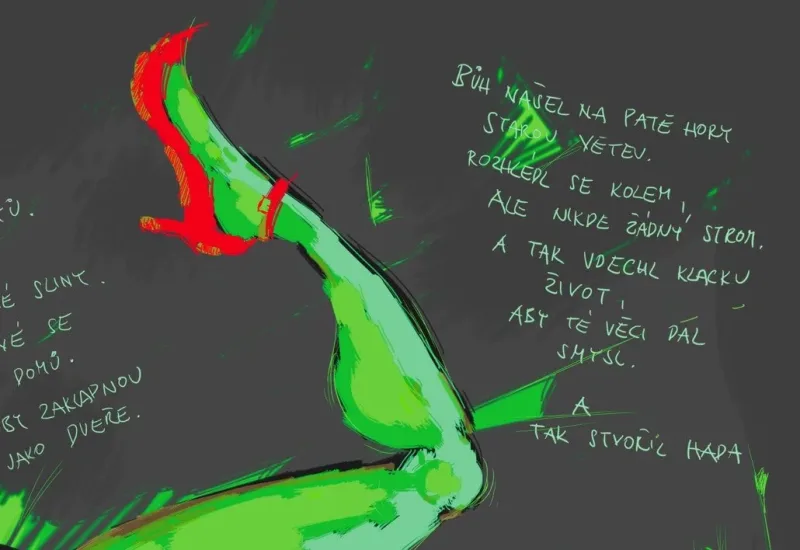 Ů.
É SLINY.
NÉ SE
DOMŮ.
BY ZAKLAPNOU
JAKO DVEŘE.
BŮH NAŠEL NA PATĚ HORY
STAROU VĚTEV.
ROZHLÉDL SE KOLEM,
ALE NIKDE ŽÁDNÝ STROM.
A TAK VDECHL KLACKU
ŽIVOT,
ABY TÉ VĚCI DAL
SMYSL.
A
TAK STVOŘIL HADA